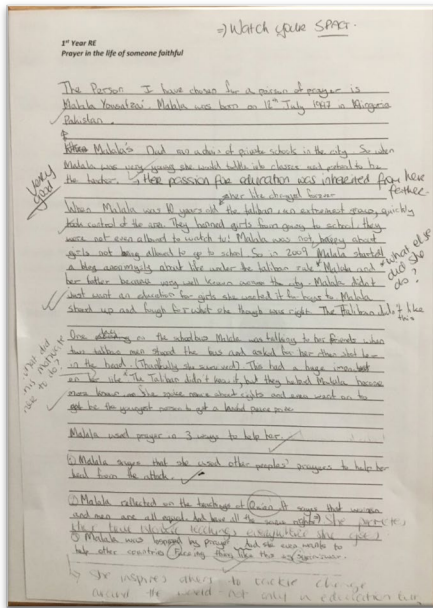 =) Watch your SPAG.
1st Year RE
Prayer in the life of someone faithful
The Person I have chosen for a person of prayer is
Malala Yousafzai. Malala was born on 12th July 1997 in Mingora
Pakistan.
Malala's Dad ran a chain of private schools in the city. So when
Malala was very young she would toddle into classes and pretend to be
the teacher. Her passion for education was inherited from her
father.
Very good
her life changed forever
When Malala was 10 years old the taliban, an extremist group, quickly
took control of the area. They banned girls from going to school, they
were not even allowed to watch tv. Malala was not happy about
girls not being allowed to go to school. So in 2009 Malala started
a blog anonymously about life under the taliban rule. Malala and
her father became very well known across the city. Malala didn't
just want an education for girls she wanted it for boys to. Malala
stood up and fough for what she though was right. The Taliban didn't like
this
what else did she do?
One day on the school bus Malala was talking to her friends when
two taliban men stood the bus and asked for her then shot her
in the head. (Thankfully she survived) This had a huge impact
on her life. The Taliban didn't know it, but they helped Malala become
more known. She spoke more about rights and even went on to
get be the youngest person to get a Nobel peace prize
Malala used prayer in 3 ways to help her.
① Malala says that she used other peoples' prayers to help her
heal from the attack.
② Malala reflected on the teachings of Quran. It says that women
and men are all equal but have all the same rights.
③ Malala was inspired by prayer and she even wants to
help other countries facing things like this
She inspires others to create change
around the world not only in education but